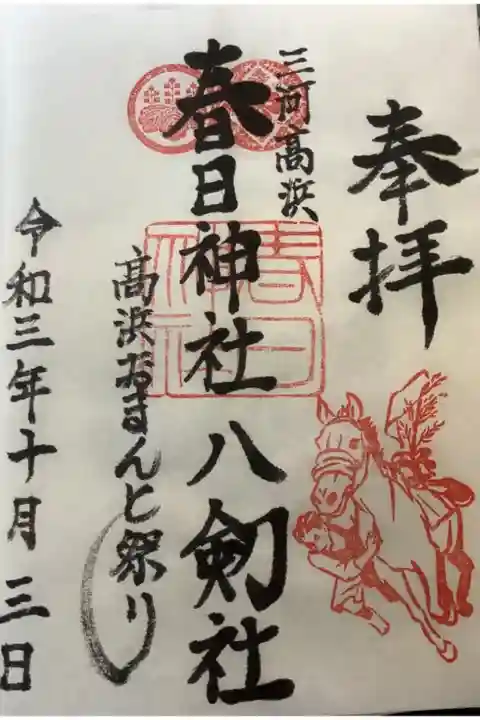 奉拝
三河高浜
春日神社 八剱社
高浜おまんと祭り
令和三年十月三日
春日神社